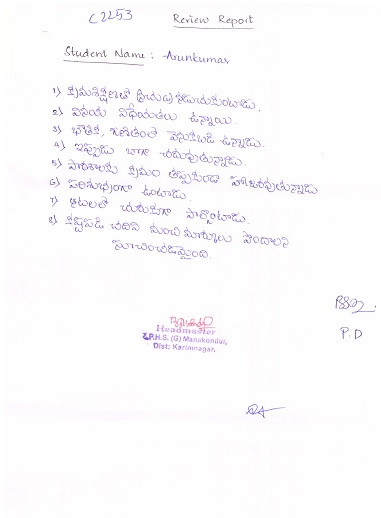 C2253
Review Report
Student Name : Arunkumar
1) క్రమశిక్షణతో నడుచుకుంటాడు.
2) వినయ విధేయతలు ఉన్నాయి.
3) భౌతిక, గణితంలో వెనుకబడి ఉన్నాడు.
4) ఇప్పుడు బాగా చదువుతున్నాడు.
5) పాఠశాలకు క్రమం తప్పకుండా హాజరవుతున్నాడు
6) పరిశుభ్రంగా ఉంటాడు.
7) ఆటలలో చురుకుగా పాల్గొంటాడు.
8) కష్టపడి చదివి మంచి మార్కులు పొందాలని
సూచించడమైంది.
Headmaster
Z.P.H.S. (G) Manakondur,
Dist: Karimnagar.
P.D